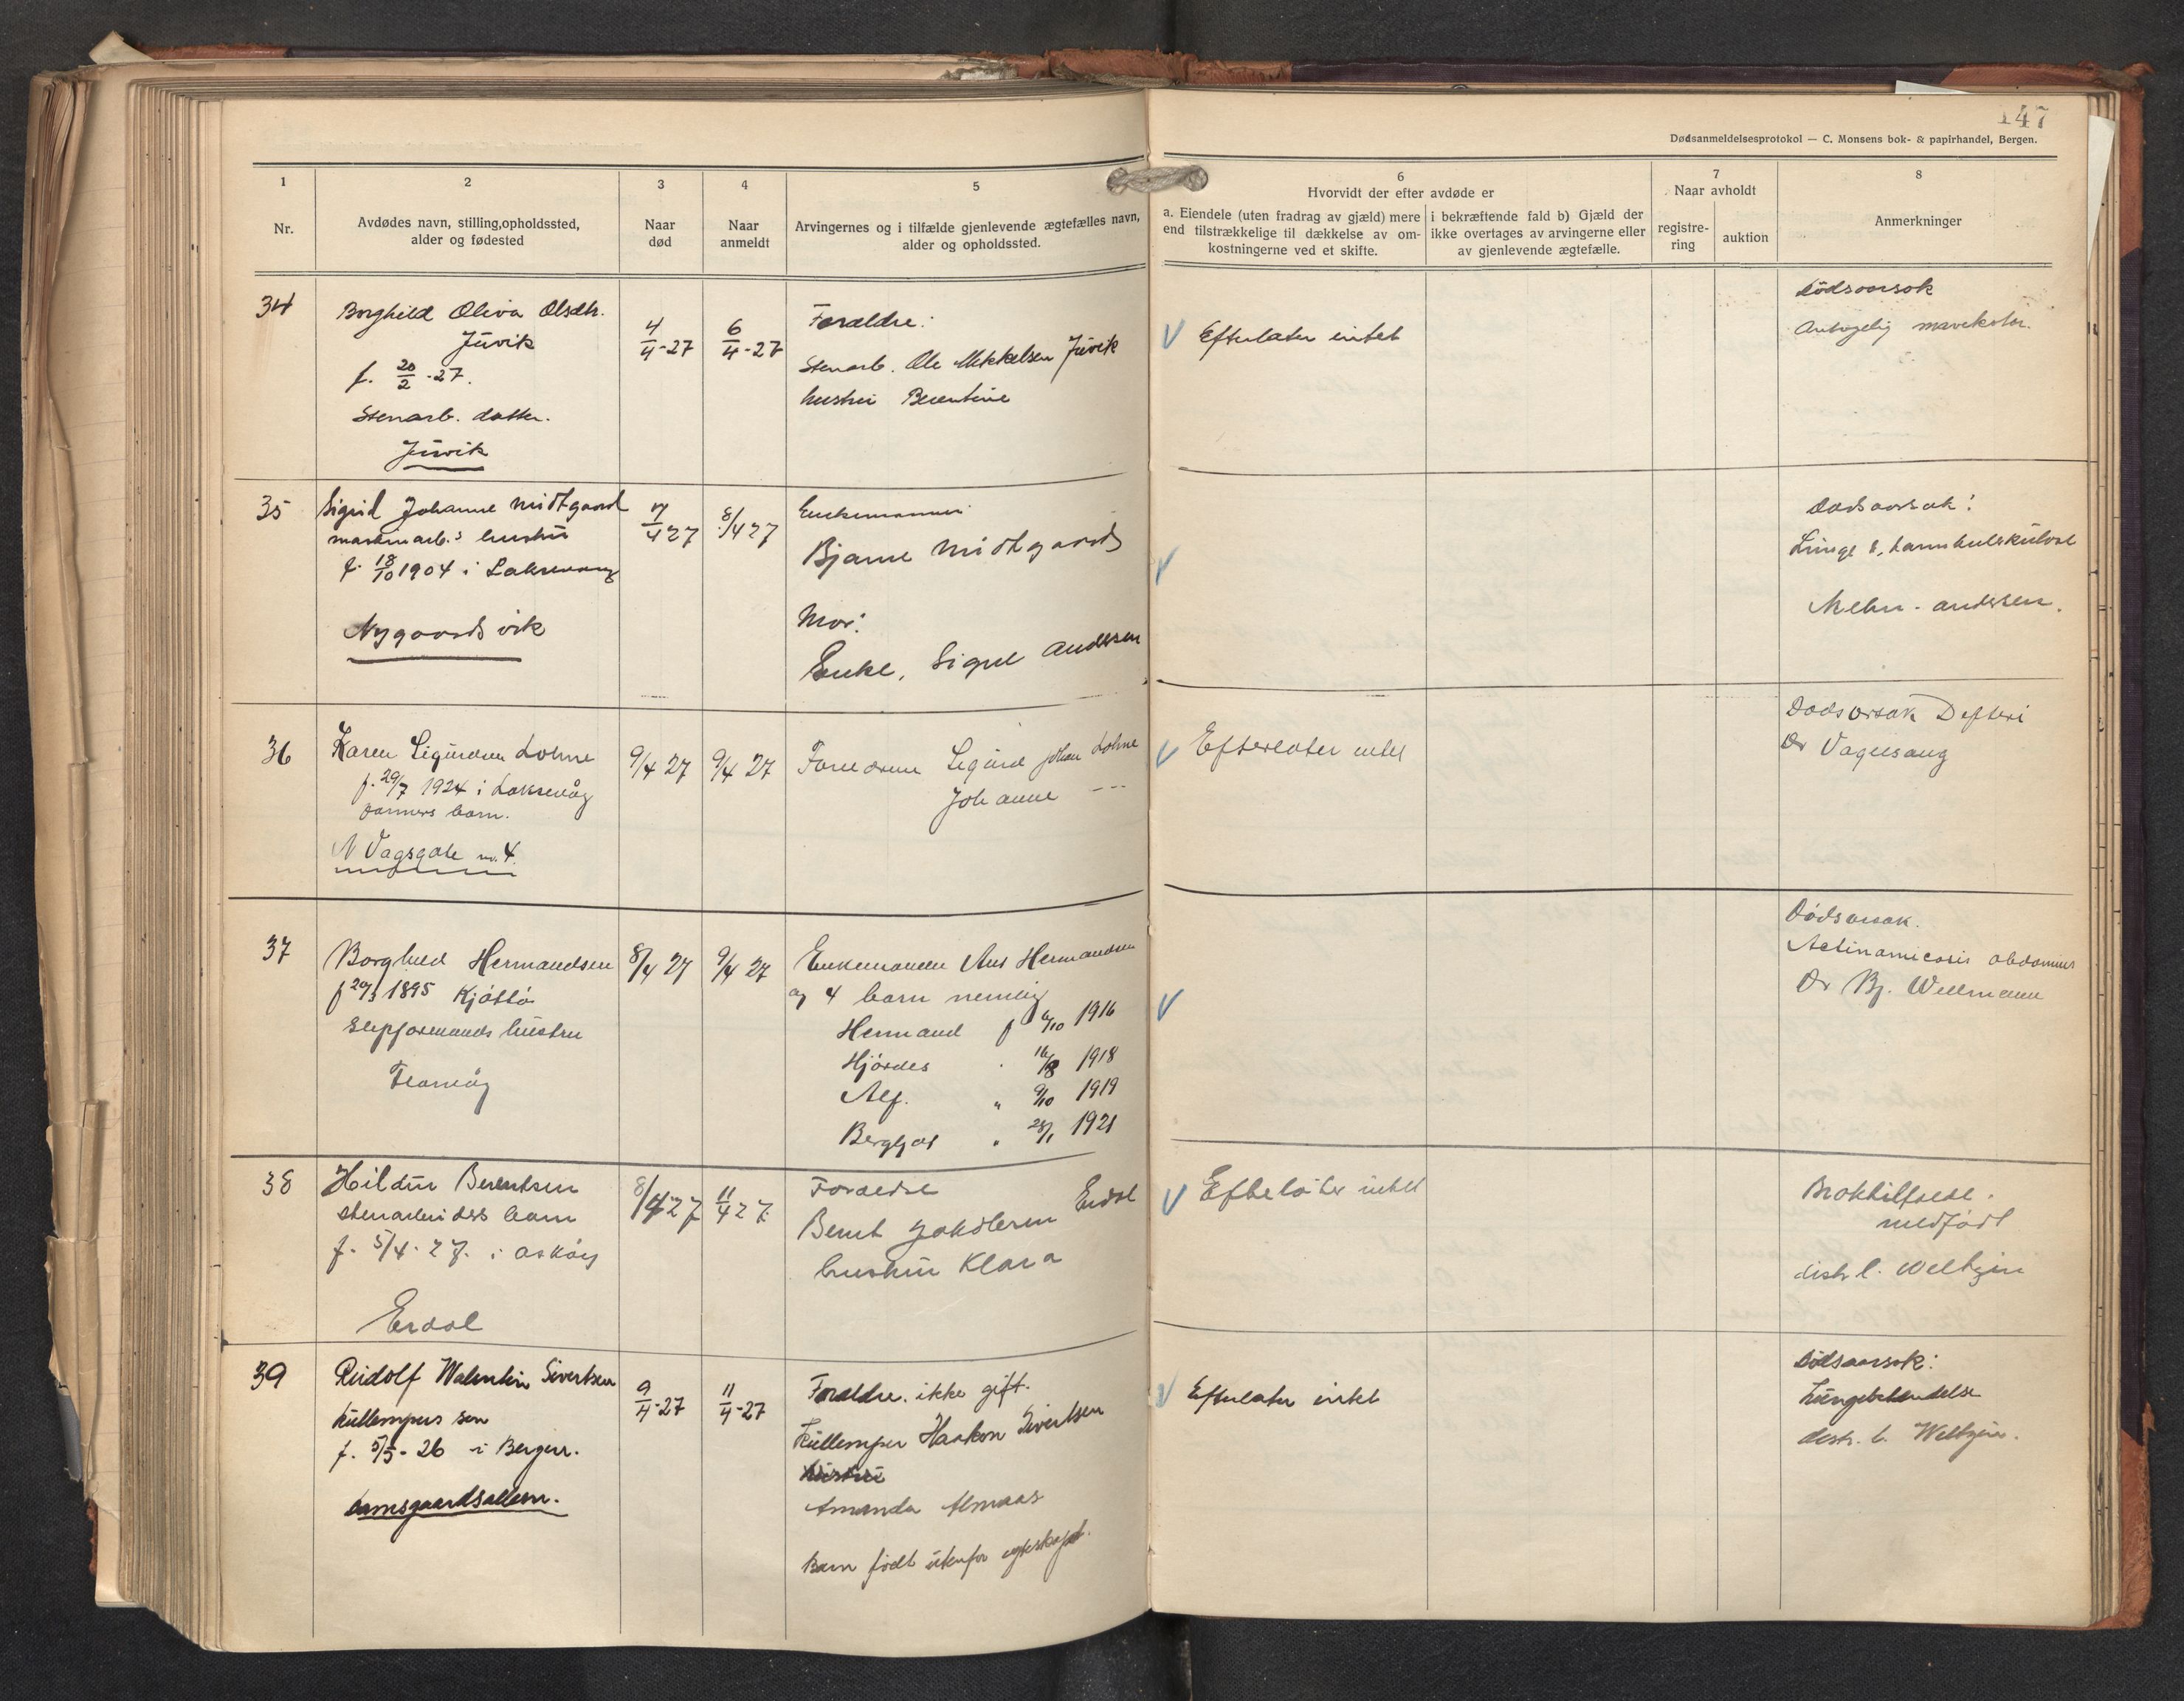 147
Dødsanmeldelsesprotokol — C. Monsens bok- & papirhandel, Bergen.
1
Nr.
2
Avdødes navn, stilling, opholdssted,
alder og fødested
3
Naar
død
4
Naar
anmeldt
5
Arvingernes og i tilfælde gjenlevende ægtefælles navn,
alder og opholdssted.
6
Hvorvidt der efter avdøde er
a. Eiendele (uten fradrag av gjæld) mere
end tilstrækkelige til dækkelse av om-
kostningerne ved et skifte.
i bekræftende fald b) Gjæld der
ikke overtages av arvingerne eller
av gjenlevende ægtefælle.
7
Naar avholdt
registre-
ring
auktion
8
Anmerkninger
34
Borghild Oliva Olsdtr.
Juvik
f. 20/2 -27.
Stenarb. datter.
Juvik
4/4-27
6/4-27
Foraldre:
Stenarb. Ole Mikkelsen Juvik
hustru Berentine
V Efterlater intet
Dödsaarsak
35
Sigrid Johanne Midtgaard
hustru
f. 18/10 1904 i Laksevaag
Nygaardsvik
7/4 27
8/4 27
Enkemannen
Bjarne Midtgaards
Mor:
Enke, Signe Andersen
V
Dødsaarsak:
Mehn-Andersen.
36
Karen Sigurdsen Lohne
f. 29/7 1924 i Laksevåg
barn.
N Vagsgate nr. 4.
9/4 27
9/4 27
Sigurd Johan Lohne
Johanne - - -
V Efterlater intet
Dødsorsak Difteri
Dr
37
Borghild Hermandsen
1895
hustru
8/4 27
9/4 27
Enkemanden Hermandsen
og 4 barn nemlig
Hermand f 6/10 1916
Hjördes " 16/8 1918
Alf. " 9/10 1919
Bergljot " 28/1 1921
V
Dødsorsak.
Actinomicosis abdominis
Dr Bj. Wellmann
38
Hildur Berentsen
stenarbeiders barn
f. 5/4. 27. i Askøy
Erdal
8/4 27
11/4 27
Foraldre
Bernt Jakobsen Erdal
hustru Klara
V Efterlater intet
medfödt
distr l. Weltzin
39
Rudolf Walentin Sivertsen
kullempers søn
f. 5/5- 26 i Bergen.
Damsgaardsalleen.
9/4-27
11/4-27
Foraldre. ikke gift.
Kullemper Haakon Sivertsen
hustru
Amanda Almaas
Barn födt utenfor egteskapet.
V Efterlater intet
Dödsaarsak:
Lungebetendelse
distr. l. Weltzin.